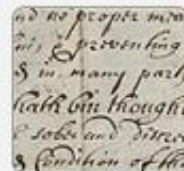 nd no proper mea
preventing
& in many part
hath bin thought
sober and discre
& Condition of th